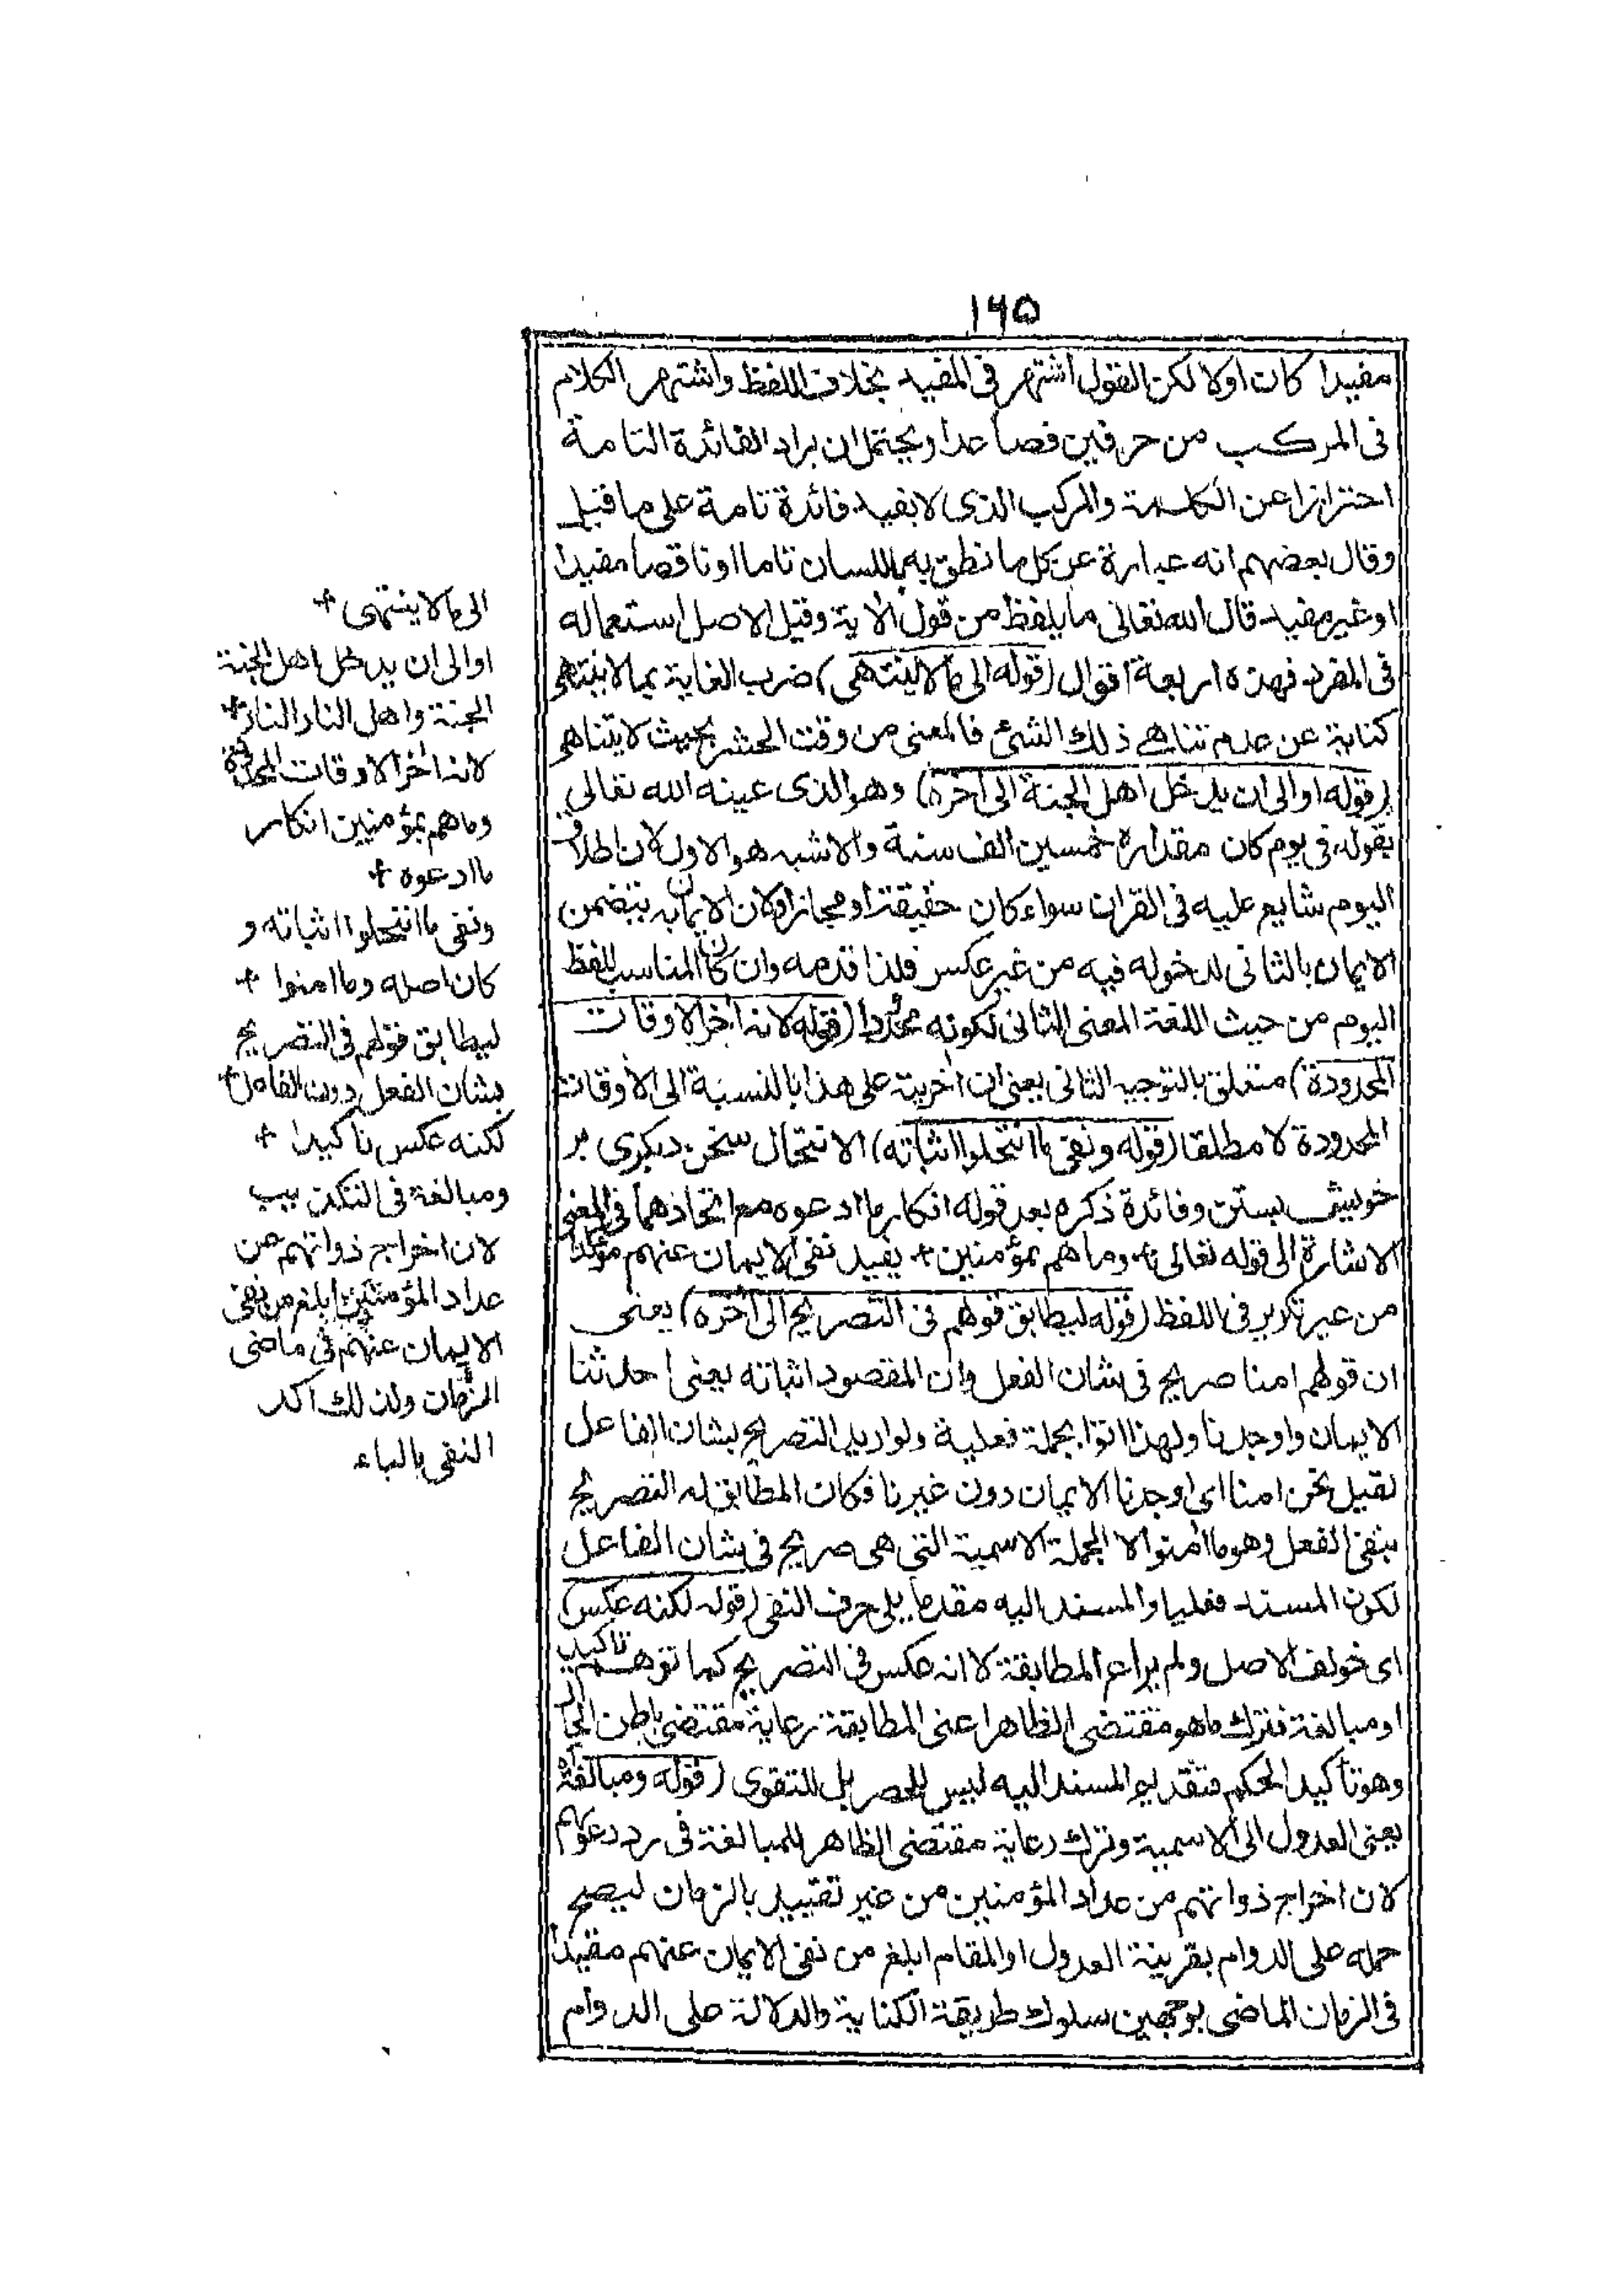 ١٦٥
مفيدا كان اولا لكن القول اشتهر فى المفيد بخلاف اللفظ واشتهر الكلام
فى المركب من حرفين فصاعدا ويحتمل ان يراد الفائدة التامة
احترازا عن الكلمة والمركب الذى لا يفيد فائدة تامة على ما قيل
وقال بعضهم انه عبارة عن كل ما نطق به اللسان تاما او ناقصا مفيدا
او غير مفيد قال الله تعالى ما يلفظ من قول الاية وقيل الاصل استعماله
فى المفرد فهذه اربعة اقوال (قوله الى مالا ينتهى) ضرب الغاية بما لا ينتهى
كناية عن عدم تناهى ذلك الشئ فالمعنى من وقت الحشر بحيث لا يتناهى
(قوله او الى ان يدخل اهل الجنة الى اخره) وهو الذى عينه الله تعالى
بقوله فى يوم كان مقداره خمسين الف سنة والاشبه هو الاول لان اطلاق
اليوم شايع عليه فى القران سواء كان حقيقة او مجازا ولان الايمان به يتضمن
الايمان بالثانى لدخوله فيه من غير عكس فلذا قدمه وان كان المناسب للفظ
اليوم من حيث اللغة المعنى الثانى لكونه محدودا (قوله لانه اخر الاوقات
المحدودة) متعلق بالتوجيه الثانى يعنى ان اخريته على هذا بالنسبة الى الاوقات
المحدودة لا مطلقا (قوله ونفى ما انتحلوا اثباته) الانتحال سخن ديكرى بر
خويش بستن وفائدة ذكره بعد قوله انكار ما ادعوه مع اتحادهما فى المعنى
الاشارة الى قوله تعالى + وما هم بمؤمنين + يفيد نفى الايمان عنهم مؤكدا
من غير تكرير فى اللفظ (قوله ليطابق قولهم فى التصريح الى اخره) يعنى
ان قولهم امنا صريح فى شان الفعل وان المقصود اثباته يعنى احدثنا
الايمان واوجدنا ولهذا اتوا بجملة فعلية ولو اريد التصريح بشان الفاعل
لقيل نحن امنا اى اوجدنا الايمان دون غيرنا فكان المطابق له التصريح
بنفى الفعل وهو ما امنوا لا الجملة الاسمية التى هى صريح فى شان الفاعل
لكون المسند فعليا والمسند اليه مقدما يلى حرف النفى (قوله لكنه عكس)
تاكيدا
اى خولف الاصل ولم يراع المطابقة لا انه عكس فى التصريح كما توهم
او مبالغة فترك ما هو مقتضى الظاهر اعنى المطابقة رعاية مقتضى باطن الحال
وهو تأكيد الحكم فتقديم المسند اليه ليس للحصر بل للتقوى (قوله ومبالغة اه)
يعنى العدول الى الاسمية وترك رعاية مقتضى الظاهر للمبالغة فى رد دعوهم
لان اخراج ذواتهم من عداد المؤمنين من غير تقييد بالزمان ليصح
حمله على الدوام بقرينة العدول او المقام ابلغ من نفى الايمان عنهم مقيدا
فى الزمان الماضى بوجهين سلوك طريقة الكناية والدلالة على الدوام
الى مالا ينتهى +
او الى ان يدخل اهل الجنة
الجنة واهل النار النار +
لانه اخر الاوقات المحدودة
وما هم بمؤمنين انكار
ما ادعوه +
ونفى ما انتحلوا اثباته و
كان اصله وما امنوا +
ليطابق قولهم فى التصريح
بشان الفعل دون الفاعل +
لكنه عكس تاكيدا +
ومبالغة فى التكذيب
لان اخراج ذواتهم من
عداد المؤمنين ابلغ من نفى
الايمان عنهم فى ماضى
الزمان ولذلك اكد
النفى بالباء